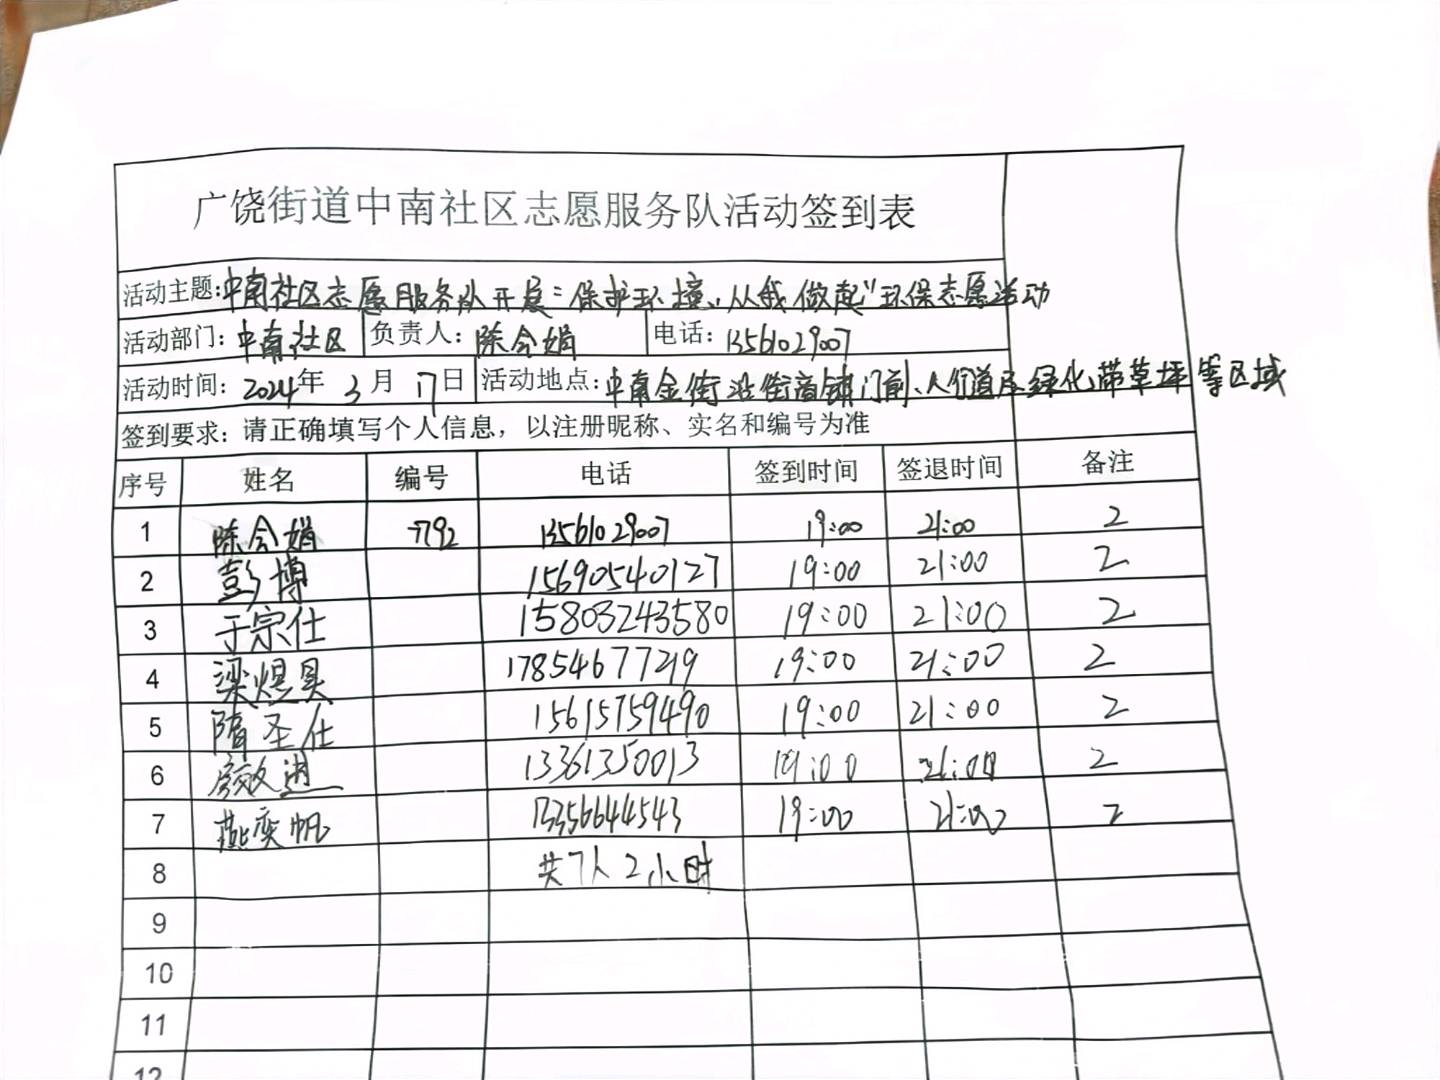 广饶街道中南社区志愿服务队活动签到表
活动主题:中南社区志愿服务队开展"保护环境、从我做起"环保志愿活动
活动部门:中南社区 负责人:陈会娟 电话:13561029007
活动时间:2024年3月17日 活动地点:中南金街沿街商铺门前、人行道及绿化带草坪等区域
签到要求:请正确填写个人信息,以注册昵称、实名和编号为准
序号 姓名 编号 电话 签到时间 签退时间 备注
1 陈会娟 7792 13561029007 19:00 21:00 2
2 彭博 15690540127 19:00 21:00 2
3 于宗仕 15803243580 19:00 21:00 2
4 梁煜昊 17854677219 19:00 21:00 2
5 隋圣仕 15615759490 19:00 21:00 2
6 13361350013 19:00 21:00 2
7 燕奕帆 13356644543 19:00 21:00 2
8 共7人2小时
9
10
11
12